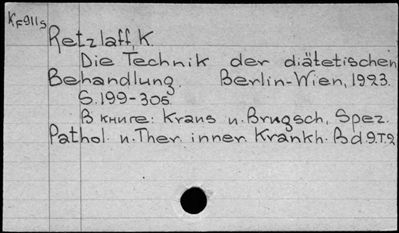 KF911s
Retzlaff, K.
Die Technik der diätetischen
Behandlung. Berlin-Wien, 1923.
S. 199-305.
В книге: Kraus u. Brugsch, Spez.
Pathol. u. Ther. inner. Krankh. Bd 9. T. 2